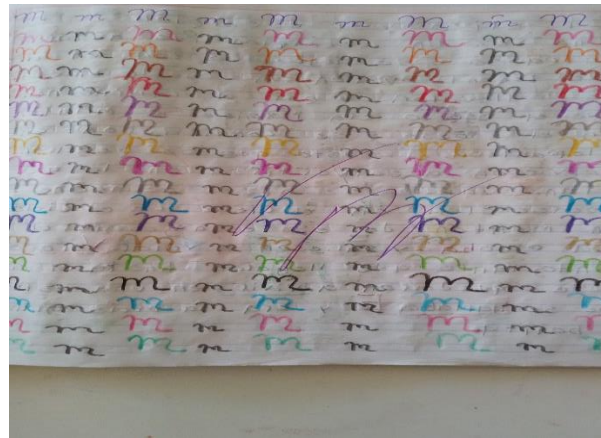 m m m m m m m m m
m m m m m m m m m
m m m m m m m m m
m m m m m m m m m
m m m m m m m m m
m m m m m m m m m
m m m m m m m m m
m m m m m m m m m
m m m m m m m m m
m m m m m m m m m
m m m m m m m m m
m m m m m m m m m
m m m m m m m m m
m m m m m m m m m
m m m m m m m m m
m m m m m m m m m
m m m m m m m m m